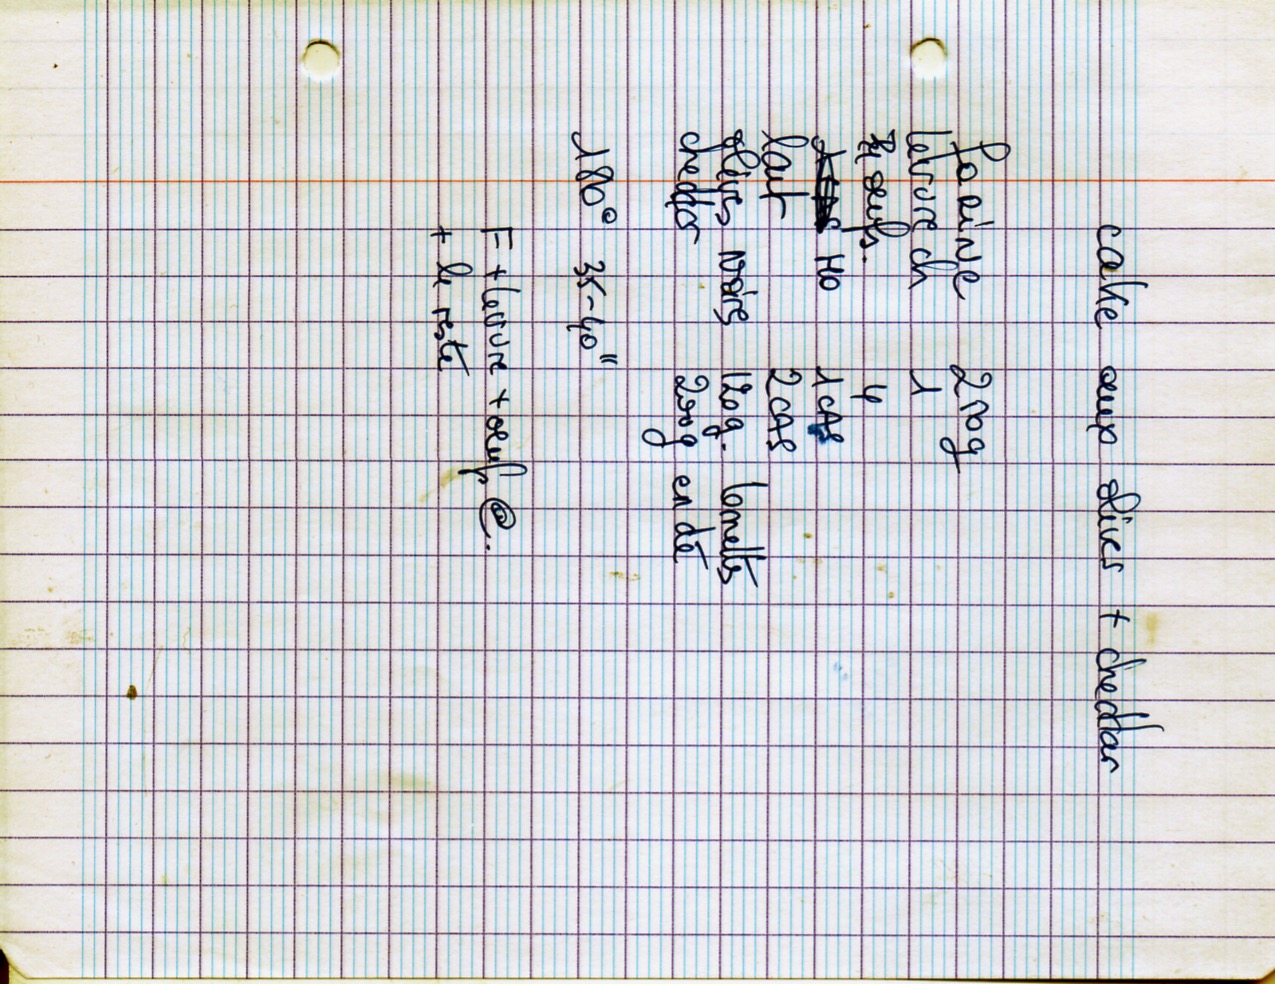 cake aux olives + cheddar
farine 200g
levure ch 1
oeufs. 4
HO 1 CAS
lait 2 CAS
olives noires 120g. lamelles
cheddar 200g en dé
180° 35-40"
F + levure + oeuf @.
+ le reste